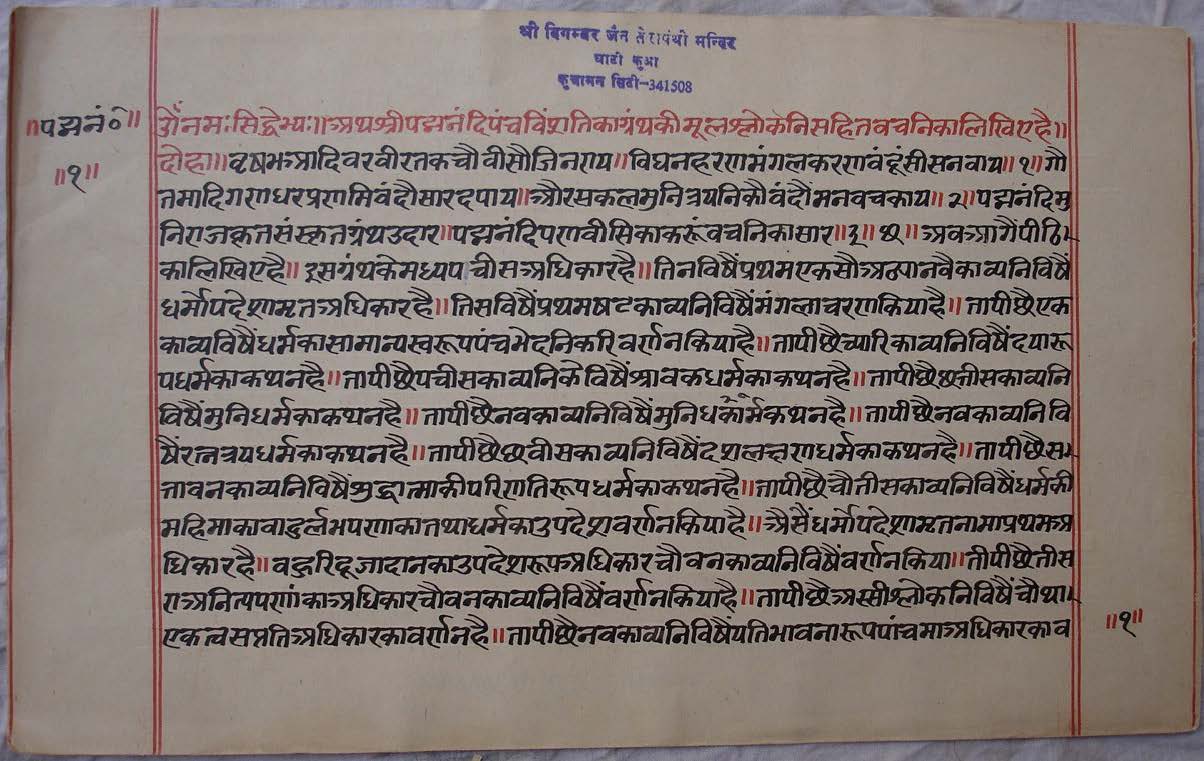 श्री दिगम्बर जैन तेरापंथी मन्दिर
घाटी कुआ
कुचामन सिटी-341508
॥पद्मनं०॥
॥१॥
ॐनमःसिद्धेभ्यः॥अथश्रीपद्मनंदिपंचविंशतिकाग्रंथकीमूलश्लोकनिसहितवचनिकालिखिएहै॥
दोहा॥वृषभआदिवरवीरतकचौवीसौजिनराय॥विघनहरणमंगलकरणवंदूंसीसनवाय॥१॥गौ
तमादिगणधरप्रणमिवंदौसारदपाय॥औरसकलमुनित्रयनिकौवंदौंमनवचकाय॥२॥पद्मनंदिमु
निराजकृतसंस्कृतग्रंथउदार॥पद्मनंदिपणवीसिकाकरूंवचनिकासार॥३॥छ॥अवआगैंपीठि
कालिखिएहै॥इसग्रंथकेमध्यपचीसअधिकारहै॥तिनविषैंप्रथमएकसौअठ्यानवैकाव्यनिविषैं
धर्मोपदेशामृतअधिकारहै॥तिसविषैंप्रथमषटकाव्यनिविषैंमंगलाचरणकियाहै॥तापीछैएक
काव्यविषैंधर्मकासामान्यस्वरूपपंचभेदनिकरिवर्णनकियाहै॥तापीछैच्यारिकाव्यनिविषैंदयारू
पधर्मकाकथनहै॥तापीछैपचीसकाव्यनिकेविषैंश्रावकधर्मकाकथनहै॥तापीछैछत्तीसकाव्यनि
विषैंमुनिधर्मकाकथनहै॥तापीछैनवकाव्यनिविषैंमुनिधकार्मकथनहै॥तापीछैनवकाव्यनिवि
षैंरत्नत्रयधर्मकाकथनहै॥तापीछैछवीसकाव्यनिविषैंदशलक्षणधर्मकाकथनहै॥तापीछैस
त्तावनकाव्यनिविषैंशुद्धात्माकीपरिणतिरूपधर्मकाकथनहै॥तापीछैचौतीसकाव्यनिविषैंधर्मकी
महिमाकावादुर्लभपणाकातथाधर्मकाउपदेशवर्णनकियाहै॥अैसैंधर्मोपदेशामृतनामाप्रथमअ
धिकारहै॥वहुरिदूजादानकाउपदेशरूपअधिकारचौवनकाव्यनिविषैंवर्णनकिया॥तीपीछैतीस
राअनित्यपणांकाअधिकारचौवनकाव्यनिविषैंवर्णनकियाहै॥तापीछैअस्सीश्लोकनिविषैंचौथा
एकत्वसप्ततिअधिकारकावर्णनहै॥तापीछैनवकाव्यनिविषैंयतिभावनारूपपांचमाअधिकारकाव
॥१॥